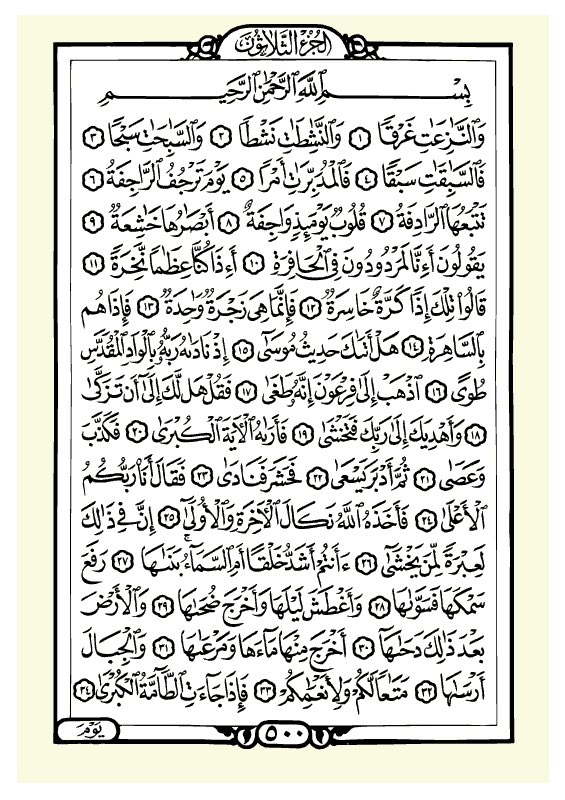 الجزء الثلاثون
بِسْمِ ٱللَّهِ ٱلرَّحْمَٰنِ ٱلرَّحِيمِ
وَٱلنَّٰزِعَٰتِ غَرْقًا ١ وَٱلنَّٰشِطَٰتِ نَشْطًا ٢ وَٱلسَّٰبِحَٰتِ سَبْحًا ٣
فَٱلسَّٰبِقَٰتِ سَبْقًا ٤ فَٱلْمُدَبِّرَٰتِ أَمْرًا ٥ يَوْمَ تَرْجُفُ ٱلرَّاجِفَةُ ٦
تَتْبَعُهَا ٱلرَّادِفَةُ ٧ قُلُوبٌ يَوْمَئِذٍ وَاجِفَةٌ ٨ أَبْصَٰرُهَا خَٰشِعَةٌ ٩
يَقُولُونَ أَءِنَّا لَمَرْدُودُونَ فِى ٱلْحَافِرَةِ ١٠ أَءِذَا كُنَّا عِظَٰمًا نَّخِرَةً ١١
قَالُوا۟ تِلْكَ إِذًا كَرَّةٌ خَاسِرَةٌ ١٢ فَإِنَّمَا هِىَ زَجْرَةٌ وَٰحِدَةٌ ١٣ فَإِذَا هُم
بِٱلسَّاهِرَةِ ١٤ هَلْ أَتَىٰكَ حَدِيثُ مُوسَىٰٓ ١٥ إِذْ نَادَىٰهُ رَبُّهُۥ بِٱلْوَادِ ٱلْمُقَدَّسِ
طُوًى ١٦ ٱذْهَبْ إِلَىٰ فِرْعَوْنَ إِنَّهُۥ طَغَىٰ ١٧ فَقُلْ هَل لَّكَ إِلَىٰٓ أَن تَزَكَّىٰ
١٨ وَأَهْدِيَكَ إِلَىٰ رَبِّكَ فَتَخْشَىٰ ١٩ فَأَرَىٰهُ ٱلْءَايَةَ ٱلْكُبْرَىٰ ٢٠ فَكَذَّبَ
وَعَصَىٰ ٢١ ثُمَّ أَدْبَرَ يَسْعَىٰ ٢٢ فَحَشَرَ فَنَادَىٰ ٢٣ فَقَالَ أَنَا۠ رَبُّكُمُ
ٱلْأَعْلَىٰ ٢٤ فَأَخَذَهُ ٱللَّهُ نَكَالَ ٱلْءَاخِرَةِ وَٱلْأُولَىٰٓ ٢٥ إِنَّ فِى ذَٰلِكَ
لَعِبْرَةً لِّمَن يَخْشَىٰٓ ٢٦ ءَأَنتُمْ أَشَدُّ خَلْقًا أَمِ ٱلسَّمَآءُ ۚ بَنَىٰهَا ٢٧ رَفَعَ
سَمْكَهَا فَسَوَّىٰهَا ٢٨ وَأَغْطَشَ لَيْلَهَا وَأَخْرَجَ ضُحَىٰهَا ٢٩ وَٱلْأَرْضَ
بَعْدَ ذَٰلِكَ دَحَىٰهَآ ٣٠ أَخْرَجَ مِنْهَا مَآءَهَا وَمَرْعَىٰهَا ٣١ وَٱلْجِبَالَ
أَرْسَىٰهَا ٣٢ مَتَٰعًا لَّكُمْ وَلِأَنْعَٰمِكُمْ ٣٣ فَإِذَا جَآءَتِ ٱلطَّآمَّةُ ٱلْكُبْرَىٰ ٣٤
٥٠٠
يَوْمَ